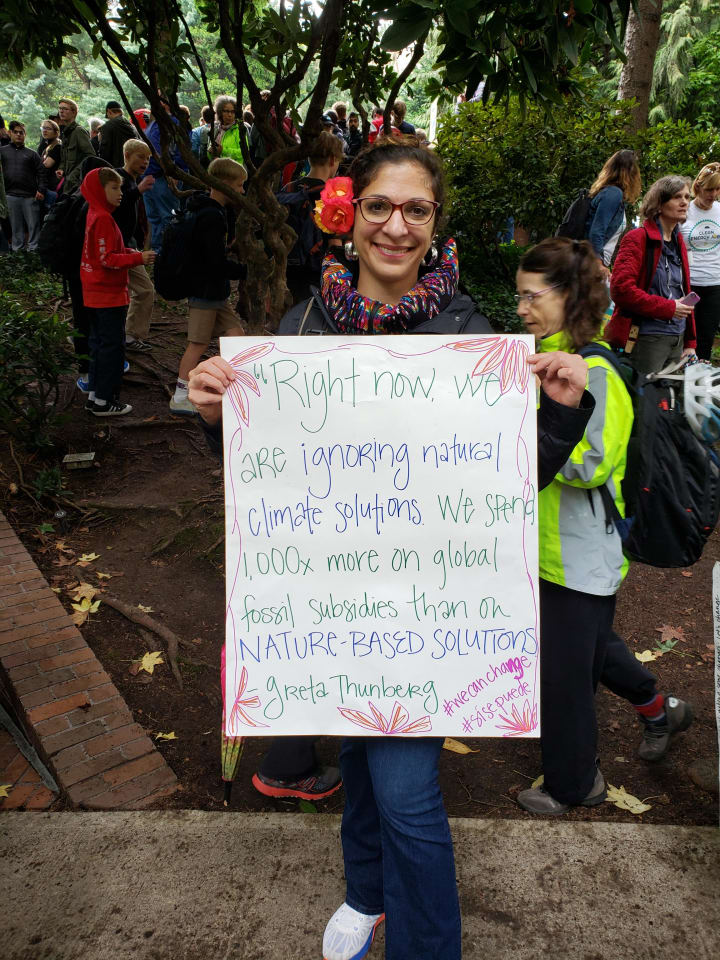 "Right now, we
are ignoring natural
climate solutions. We spend
1,000x more on global
fossil subsidies than on
NATURE-BASED SOLUTIONS
- Greta Thunberg
#wecanchange
#sisepuede
CLEAN
ENERGY